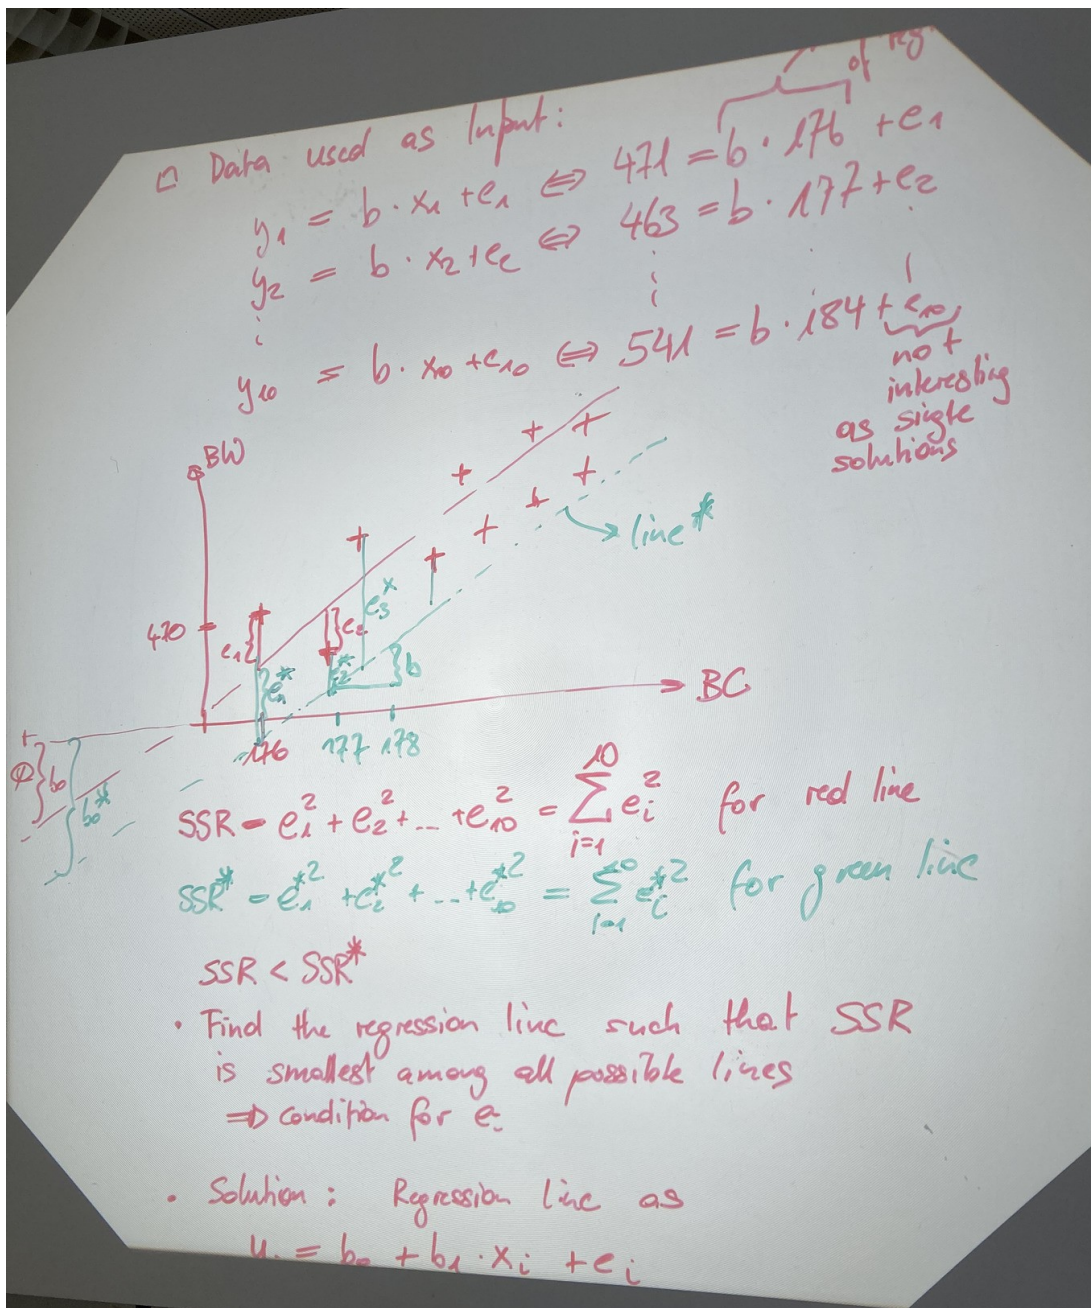 of reg
□ Data used as Input:
y₁ = b · x₁ + e₁ ⇔ 471 = b · 176 + e₁
y₂ = b · x₂ + e₂ ⇔ 463 = b · 177 + e₂
⋮ ⋮ ⋮
y₁₀ = b · x₁₀ + e₁₀ ⇔ 541 = b · 184 + e₁₀
not
interesting
as single
solutions
BW
line*
470
e₁
e₂
e₃*
e₁*
e₂*
b
BC
176 177 178
b₀
b₀*
SSR = e₁² + e₂² + ... + e₁₀² = ∑_{i=1}^{10} e_i² for red line
SSR* = e₁*² + e₂*² + ... + e₁₀*² = ∑_{i=1}^{10} e_i*² for green line
SSR < SSR*
· Find the regression line such that SSR
is smallest among all possible lines
⇒ condition for e.
· Solution: Regression line as
y_i = b₀ + b₁ · x_i + e_i